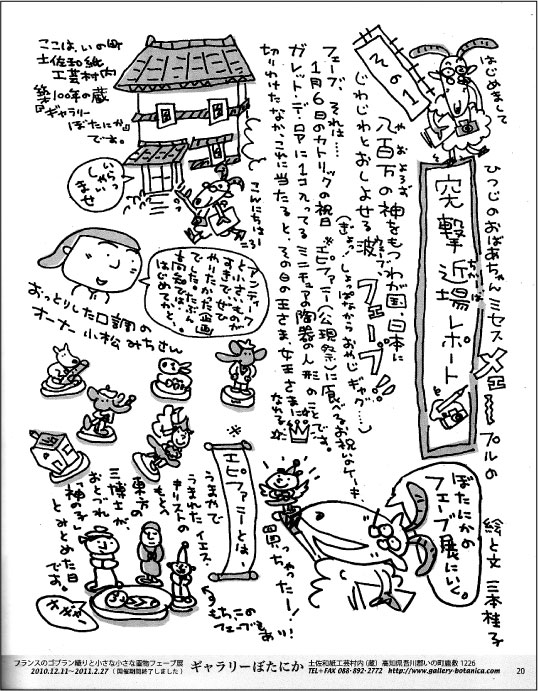 はじめまして
ひつじのおばあちゃんミセスメェ〜プルの
その1
突撃近場レポート
ちかば
絵と文 三本桂子
ぼたにかの
フェーブ展にいく。
八百万の神をもつわが国、日本に
やおよろず
じわじわとおしよせる波、フェーブ!!
(ぎょっ!しょっぱなからおやじギャグ…)
フェーブ、それは…
1月6日のカトリックの祝日 ※エピファニー(公現祭)に食べるお祝いのケーキ
ガレット・デ・ロアに1コ入ってるミニチュアの陶器の人形のことです。
切りわけたなか、これに当たると、その日の王さま、女王さまになれるとか
買っちゃったー!
ここは、いの町
土佐和紙
工芸村内
築100年の蔵
『ギャラリー
ぼたにか』
です。
いらっ
しゃい
ませ
こんにちはー
アンティーク
と、小さいものが
すきで、ぜひ
やりたかった企画
でした。たぶん
高知では
はじめてかと、
おっとりした口調の
オーナー小松みちさん
※
エピファニーとは、
うまやで
うまれた イエス・
キリストの
もとへ、
東方の
三博士が、
おとづれ
「神の子」
とみとめた日
です。
もち、この
フェーブもあり!
フランスのゴブラン織りと小さな小さな置物フェーブ展
2010.12.11〜2011.2.27 (開催期間終了しました)
ギャラリーぼたにか
土佐和紙工芸村内(蔵) 高知県吾川郡いの町鹿敷1226
TEL+FAX 088・892・2772 http://www.gallery-botanica.com/
20